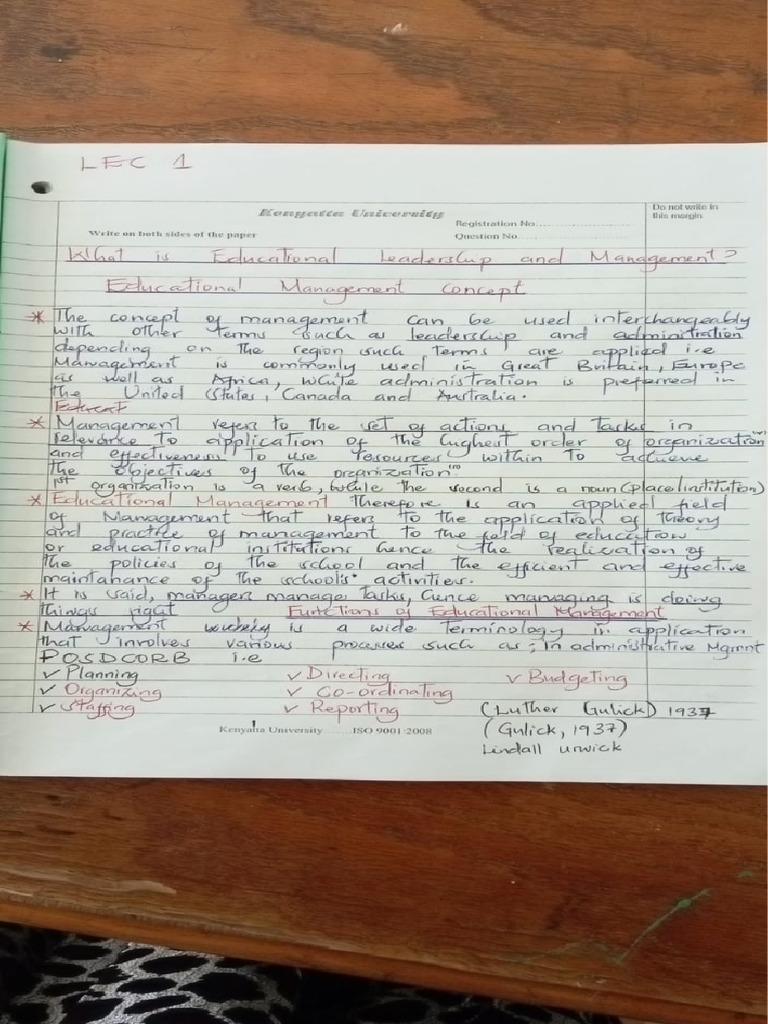 LEC 1
Kenyatta University
Do not write in this margin
Registration No.
Write on both sides of the paper
Question No.
What is Educational Leadership and Management?
Educational Management concept
* The concept of management can be used interchangeably
with other terms such as leadership and administration
depending on the region such terms are applied i.e
Management is commonly used in Great Britain, Europe
as well as Africa, while administration is preferred in
the United States, Canada and Australia.
Educat
* Management refers to the set of actions and tasks in
relevance to application of the highest order of organization
and effectiveness to use resources within to achieve
the objectives of the organization.
1st organization is a verb, while the second is a noun (place/institution)
* Educational Management therefore is an applied field
of Management that refers to the application of theory
and practice of management to the field of education
or educational institutions hence the realization of
the policies of the school and the efficient and effective
maintanance of the school's activities.
* It is said, managers manage tasks, hence managing is doing
things right Functions of Educational Management
* Management is a wide terminology in application
that involves various processes such as; in administrative Mgmnt
POSDCORB i.e
✓ Planning ✓ Directing ✓ Budgeting
✓ Organizing ✓ Co-ordinating
✓ Staffing ✓ Reporting (Luther Gulick) 1937
(Gulick, 1937)
Lindall urwick
1
Kenyatta University ISO 9001:2008